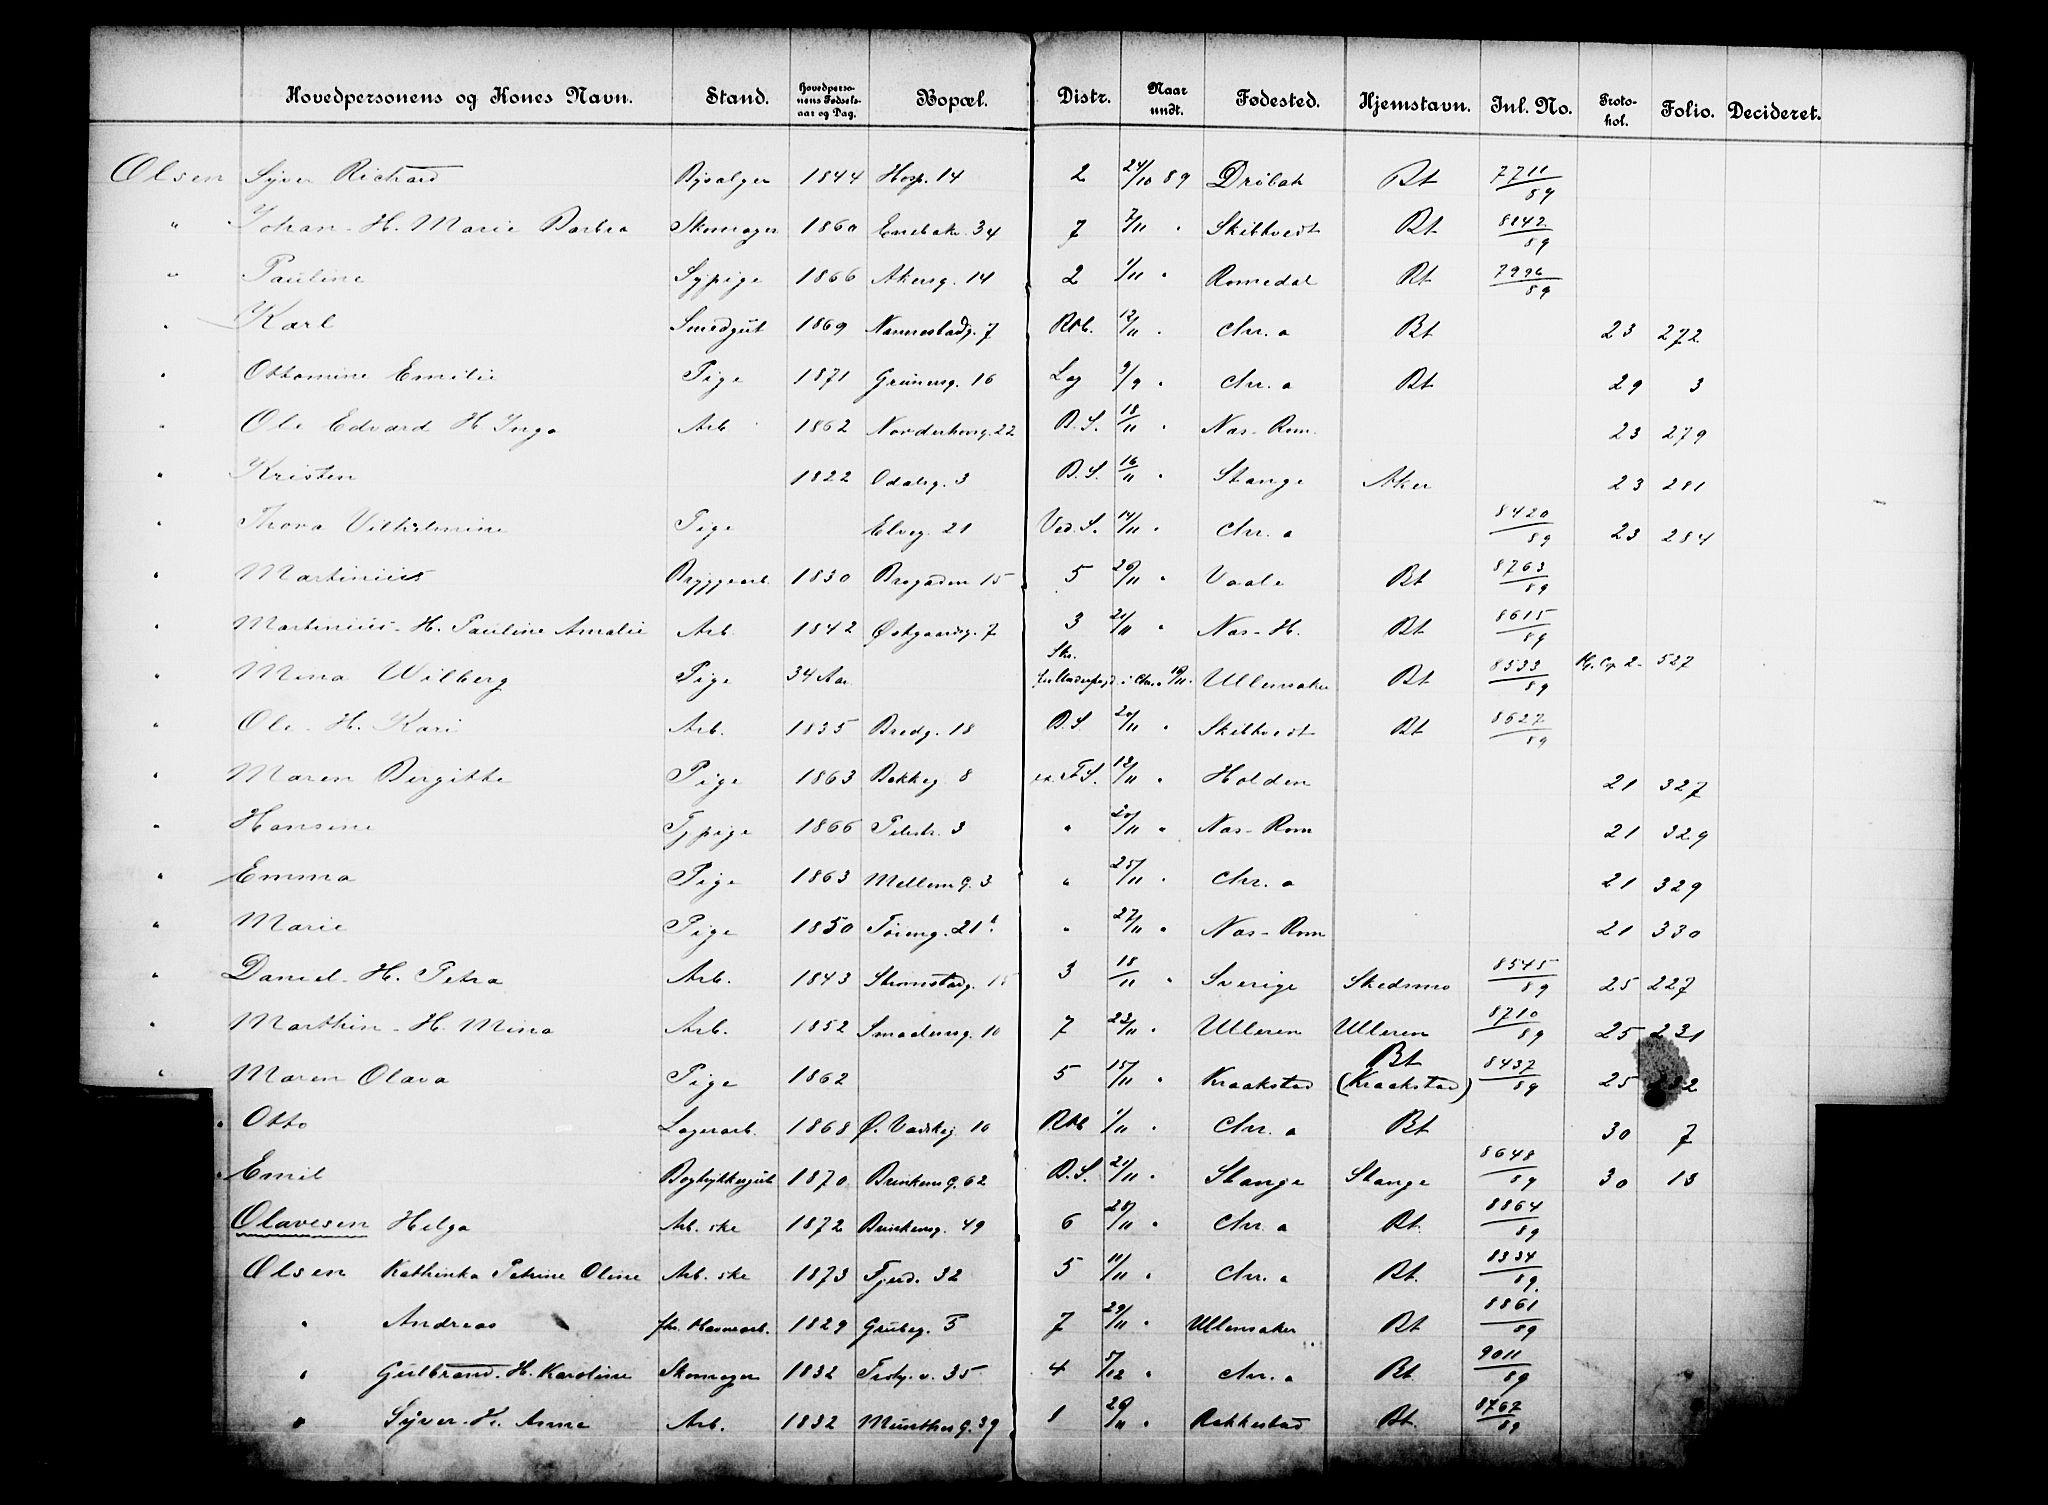 Hovedpersonens og Kones Navn. Stand. Hovedpersonens Fødselsaar og Dag. Bopæl. Distr. Naar undt. Fødested. Hjemstavn. Inl. No. Protokol. Folio. Decideret.
Olsen Syver Richard Bysælger 1844 Hosp. 14 2 24/10 89 Drøbak Bt 7711/89
" Johan - H. Marie Barbra Skomager 1860 Enebakv. 34 7 7/11 " Skibtvedt Bt 8142/89
" Pauline Sypige 1866 Akersg. 14 2 1/11 " Romedal Bt 7996/89
" Karl Smedgut 1869 Nannestadg. 7 Rtb. 12/11 " Chr.a Bt 23 272
" Ottomine Emilie Pige 1871 Grünersg. 16 Log 9/9 " Chr.a Bt 29 3
" Ole Edvard H. Inga Arb. 1862 Norderhovsg. 22 B.S. 18/11 " Næs-Rom. 23 279
" Kristen 1822 Odalsg. 3 B.S. 16/11 " Stange Aker 23 281
" Thora Vilhelmine Pige Elveg. 21 Ved.S. 14/11 " Chr.a 8420/89 23 284
" Martinius Bryggearb. 1830 Brogaden 15 5 26/11 " Vaale Bt 8763/89
" Martinius - H. Pauline Amalie Arb. 1842 Østgaardsg. 7 3 21/11 " Næs-H. Bt 8615/89
" Mina Wilberg Pige 34 Aar i Chr.a 19/11 " Ullensaker Bt 8533/89 527
" Ole - H. Kari Arb. 1835 Bredg. 18 B.S. 20/11 " Skibtvedt Bt 8627/89
" Maren Birgitte Pige 1863 Bakkeg. 8 12/11 " Holden 21 327
" Hansine Typige 1866 Pilestr. 3 " 20/11 " Næs-Rom 21 329
" Emma Pige 1863 Mellem G. 3 " 25/11 " Chr.a 21 329
" Marie Pige 1850 Tøieng. 21 " 27/11 " Næs-Rom 21 330
" Daniel - H. Petra Arb. 1843 Strømstadg. 15 3 18/11 " Sverige Skedsmo 8545/89 25 227
" Marthin - H. Mina Arb. 1852 Smaalensg. 10 7 23/11 " Ulleren Ulleren 8710/89 25 231
" Maren Olava Pige 1862 5 15/11 " Kraakstad Bt (Kraakstad) 8437/89 25 232
" Otto Lagerarb. 1868 Ø. Vadskj. 10 Rtb 1/11 " Chr.a Bt 30 7
" Emil Bogtrykkergut 1870 Brinkens G. 62 B.S. 21/11 " Stange Stange 8648/89 30 13
Olavesen Helga Arb.ske 1872 Brinkensg. 49 6 28/11 " Chr.a Bt. 8864/89
Olsen Kathinka Petrine Oline Arb.ske 1873 Fjerd. 32 5 11/11 " Chr.a Bt. 8334/89
" Andreas fhv. Havnearb. 1829 Grubeg. 5 7 29/11 " Ullensaker Bt 8861/89
" Gulbrand - H. Karoline Skomager 1832 35 4 5/12 " Chr.a Bt 9011/89
" Syver - H. Anne Arb. 1832 Munthes G. 39 1 26/11 " Rakkestad Bt. 8767/89